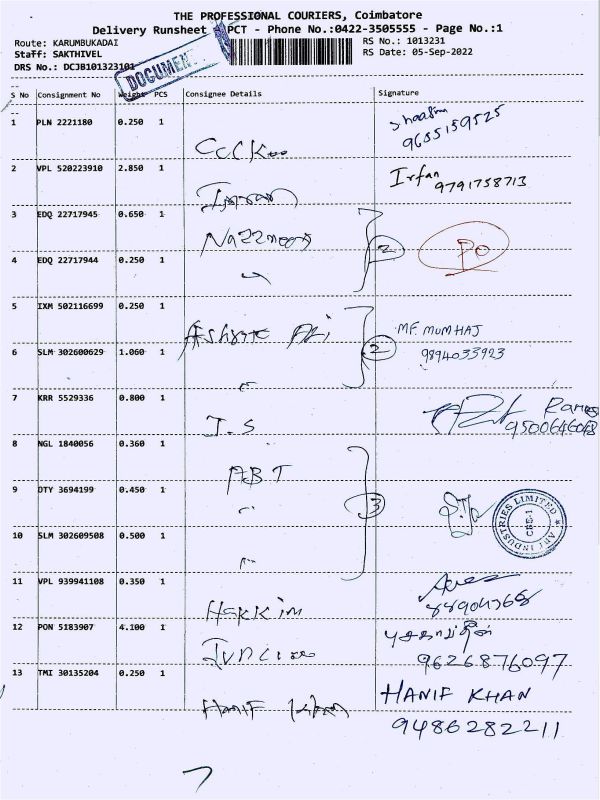 THE PROFESSIONAL COURIERS, Coimbatore
Delivery Runsheet PCT - Phone No.:0422-3505555 - Page No.:1
Route: KARUMBUKADAI
RS No.: 1013231
Staff: SAKTHIVEL
RS Date: 05-Sep-2022
DRS No.: DCJB101323101
DOCUMEN
S No Consignment No Weight PCS Consignee Details Signature
1 PLN 2221180 0.250 1
9655159525
2 VPL 520223910 2.850 1 Irfan
9791758713
3 EDQ 22717945 0.650 1
4 EDQ 22717944 0.250 1 2
5 IXM 502116699 0.250 1 MF. MUMHAJ
6 SLM 302600629 1.060 1 2 9894033923
7 KRR 5529336 0.800 1 I.S
9500646048
8 NGL 1840056 0.360 1 ABT
9 DTY 3694199 0.450 1 3
ABT INDUSTRIES LIMITED
CBE-1
10 SLM 302609508 0.500 1
11 VPL 939941108 0.350 1 Hakkim
12 PON 5183907 4.100 1
9626876097
13 TMI 30135204 0.250 1 Hanif Khan HANIF KHAN
9486282211